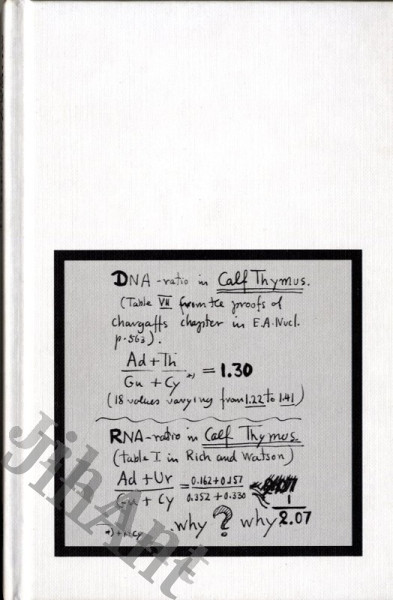 DNA-ratio in Calf Thymus.
(Table VII from the proofs of
Chargaffs chapter in E.A. Nucl.
p. 563).
Ad + Th
Gu + Cy *) = 1.30
(18 values varying from 1.22 to 1.41)
RNA-ratio in Calf Thymus.
(table I in Rich and Watson)
Ad + Ur = 0.162 + 0.157
Gu + Cy 0.352 + 0.330
1
2.07
why ? why
JihAnt